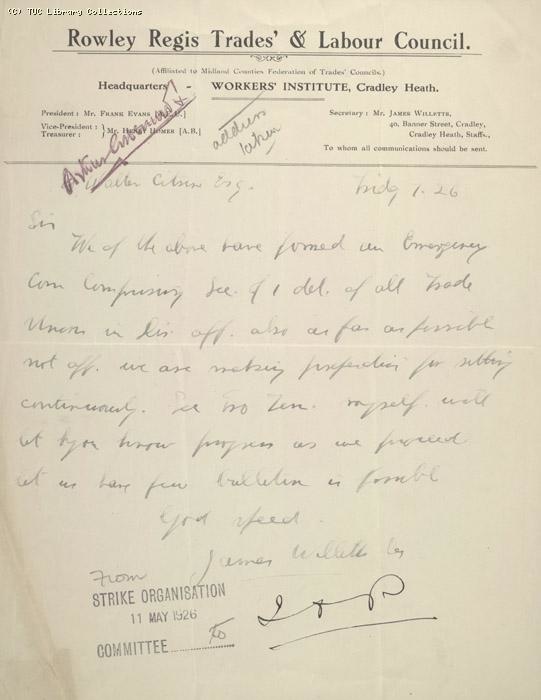 (C) TUC Library Collections
Rowley Regis Trades' & Labour Council.
(Affiliated to Midland Counties Federation of Trades' Councils.)
Headquarters - WORKERS' INSTITUTE, Cradley Heath.
President: Mr. Frank Evans
Vice-President: } Mr. Henry Homer [A.B.]
Treasurer:
Secretary: Mr. James Willetts,
40, Banner Street, Cradley,
Cradley Heath, Staffs.,
To whom all communications should be sent.
address
taken
Walter Citrine Esq.
Sir
We of the above have formed an Emergency
Com Comprising Sec. & 1 del. of all Trade
Unions in Dis. aff. also as far as possible
not aff. we are making preparation for sitting
continuously. myself. will
let you know progress as we proceed
let us have few bulletins if possible
God speed.
James Willetts
From
STRIKE ORGANISATION
11 MAY 1926
COMMITTEE to